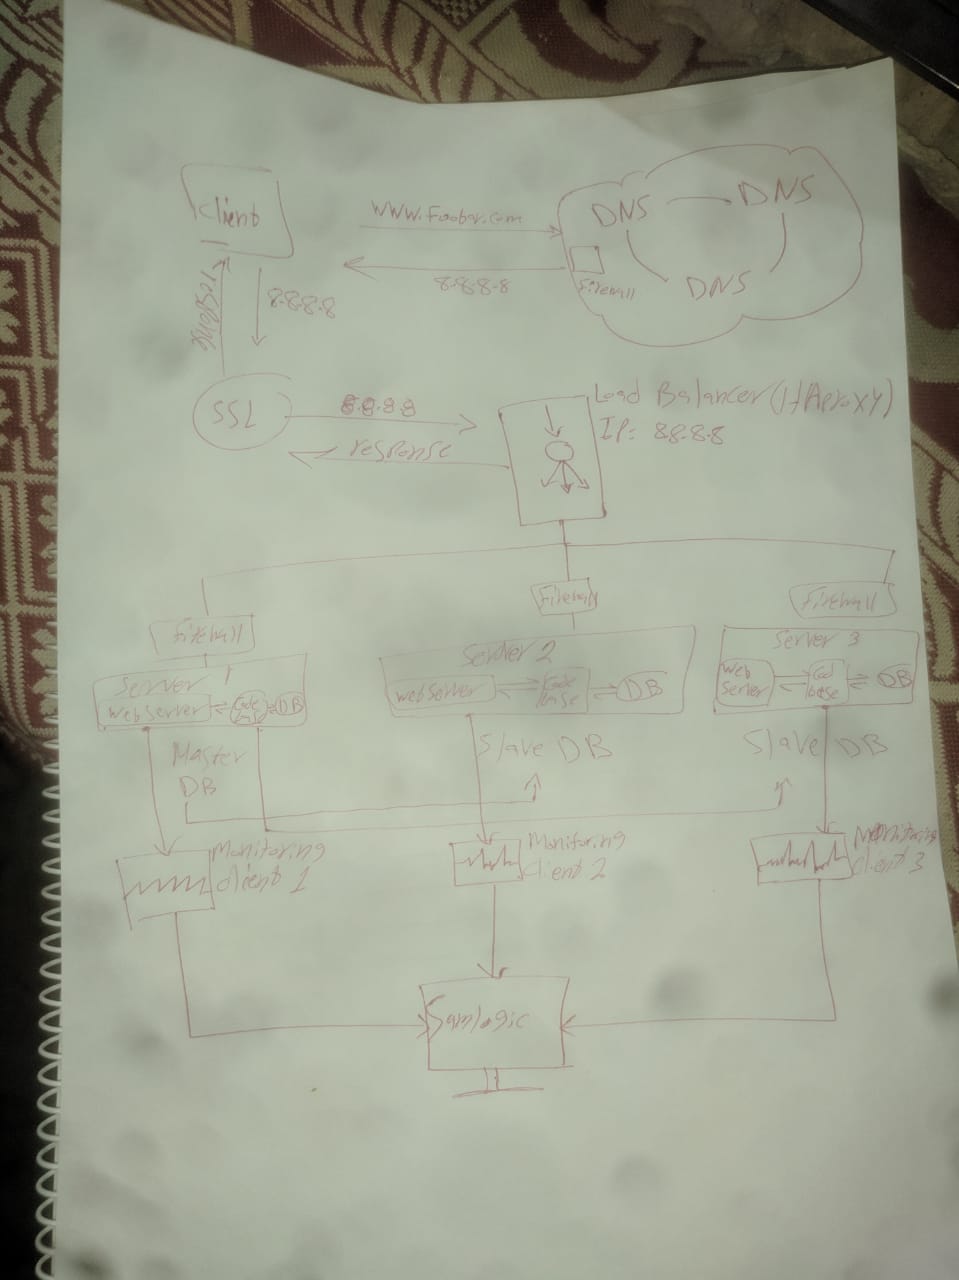 Client
www.Foobar.com
DNS
DNS
DNS
Firewall
8.8.8.8
8.8.8.8
response
SSL
8.8.8.8
response
Load Balancer (HAproxy)
IP: 8.8.8.8
Firewall
Firewall
Firewall
Server 1
Web Server
Code
DB
Server 2
Web Server
Code
base
DB
Server 3
Web
Server
Cod
base
DB
Master
DB
Slave DB
Slave DB
Monitoring
Client 1
Monitoring
Client 2
Monitoring
Client 3
Samlogic